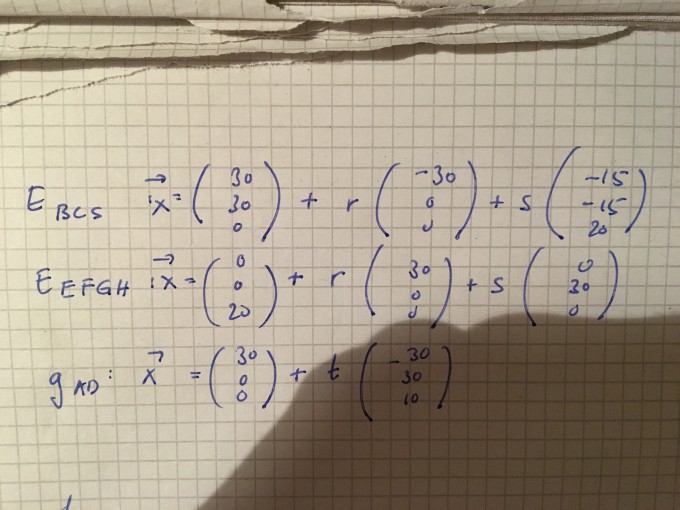 E BCS :x⃗ = (30 30 0) + r (-30 0 0) + s (-15 -15 20)
E EFGH :x⃗ = (0 0 20) + r (30 0 0) + s (0 30 0)
g AD: x⃗ = (30 0 0) + t (-30 30 10)